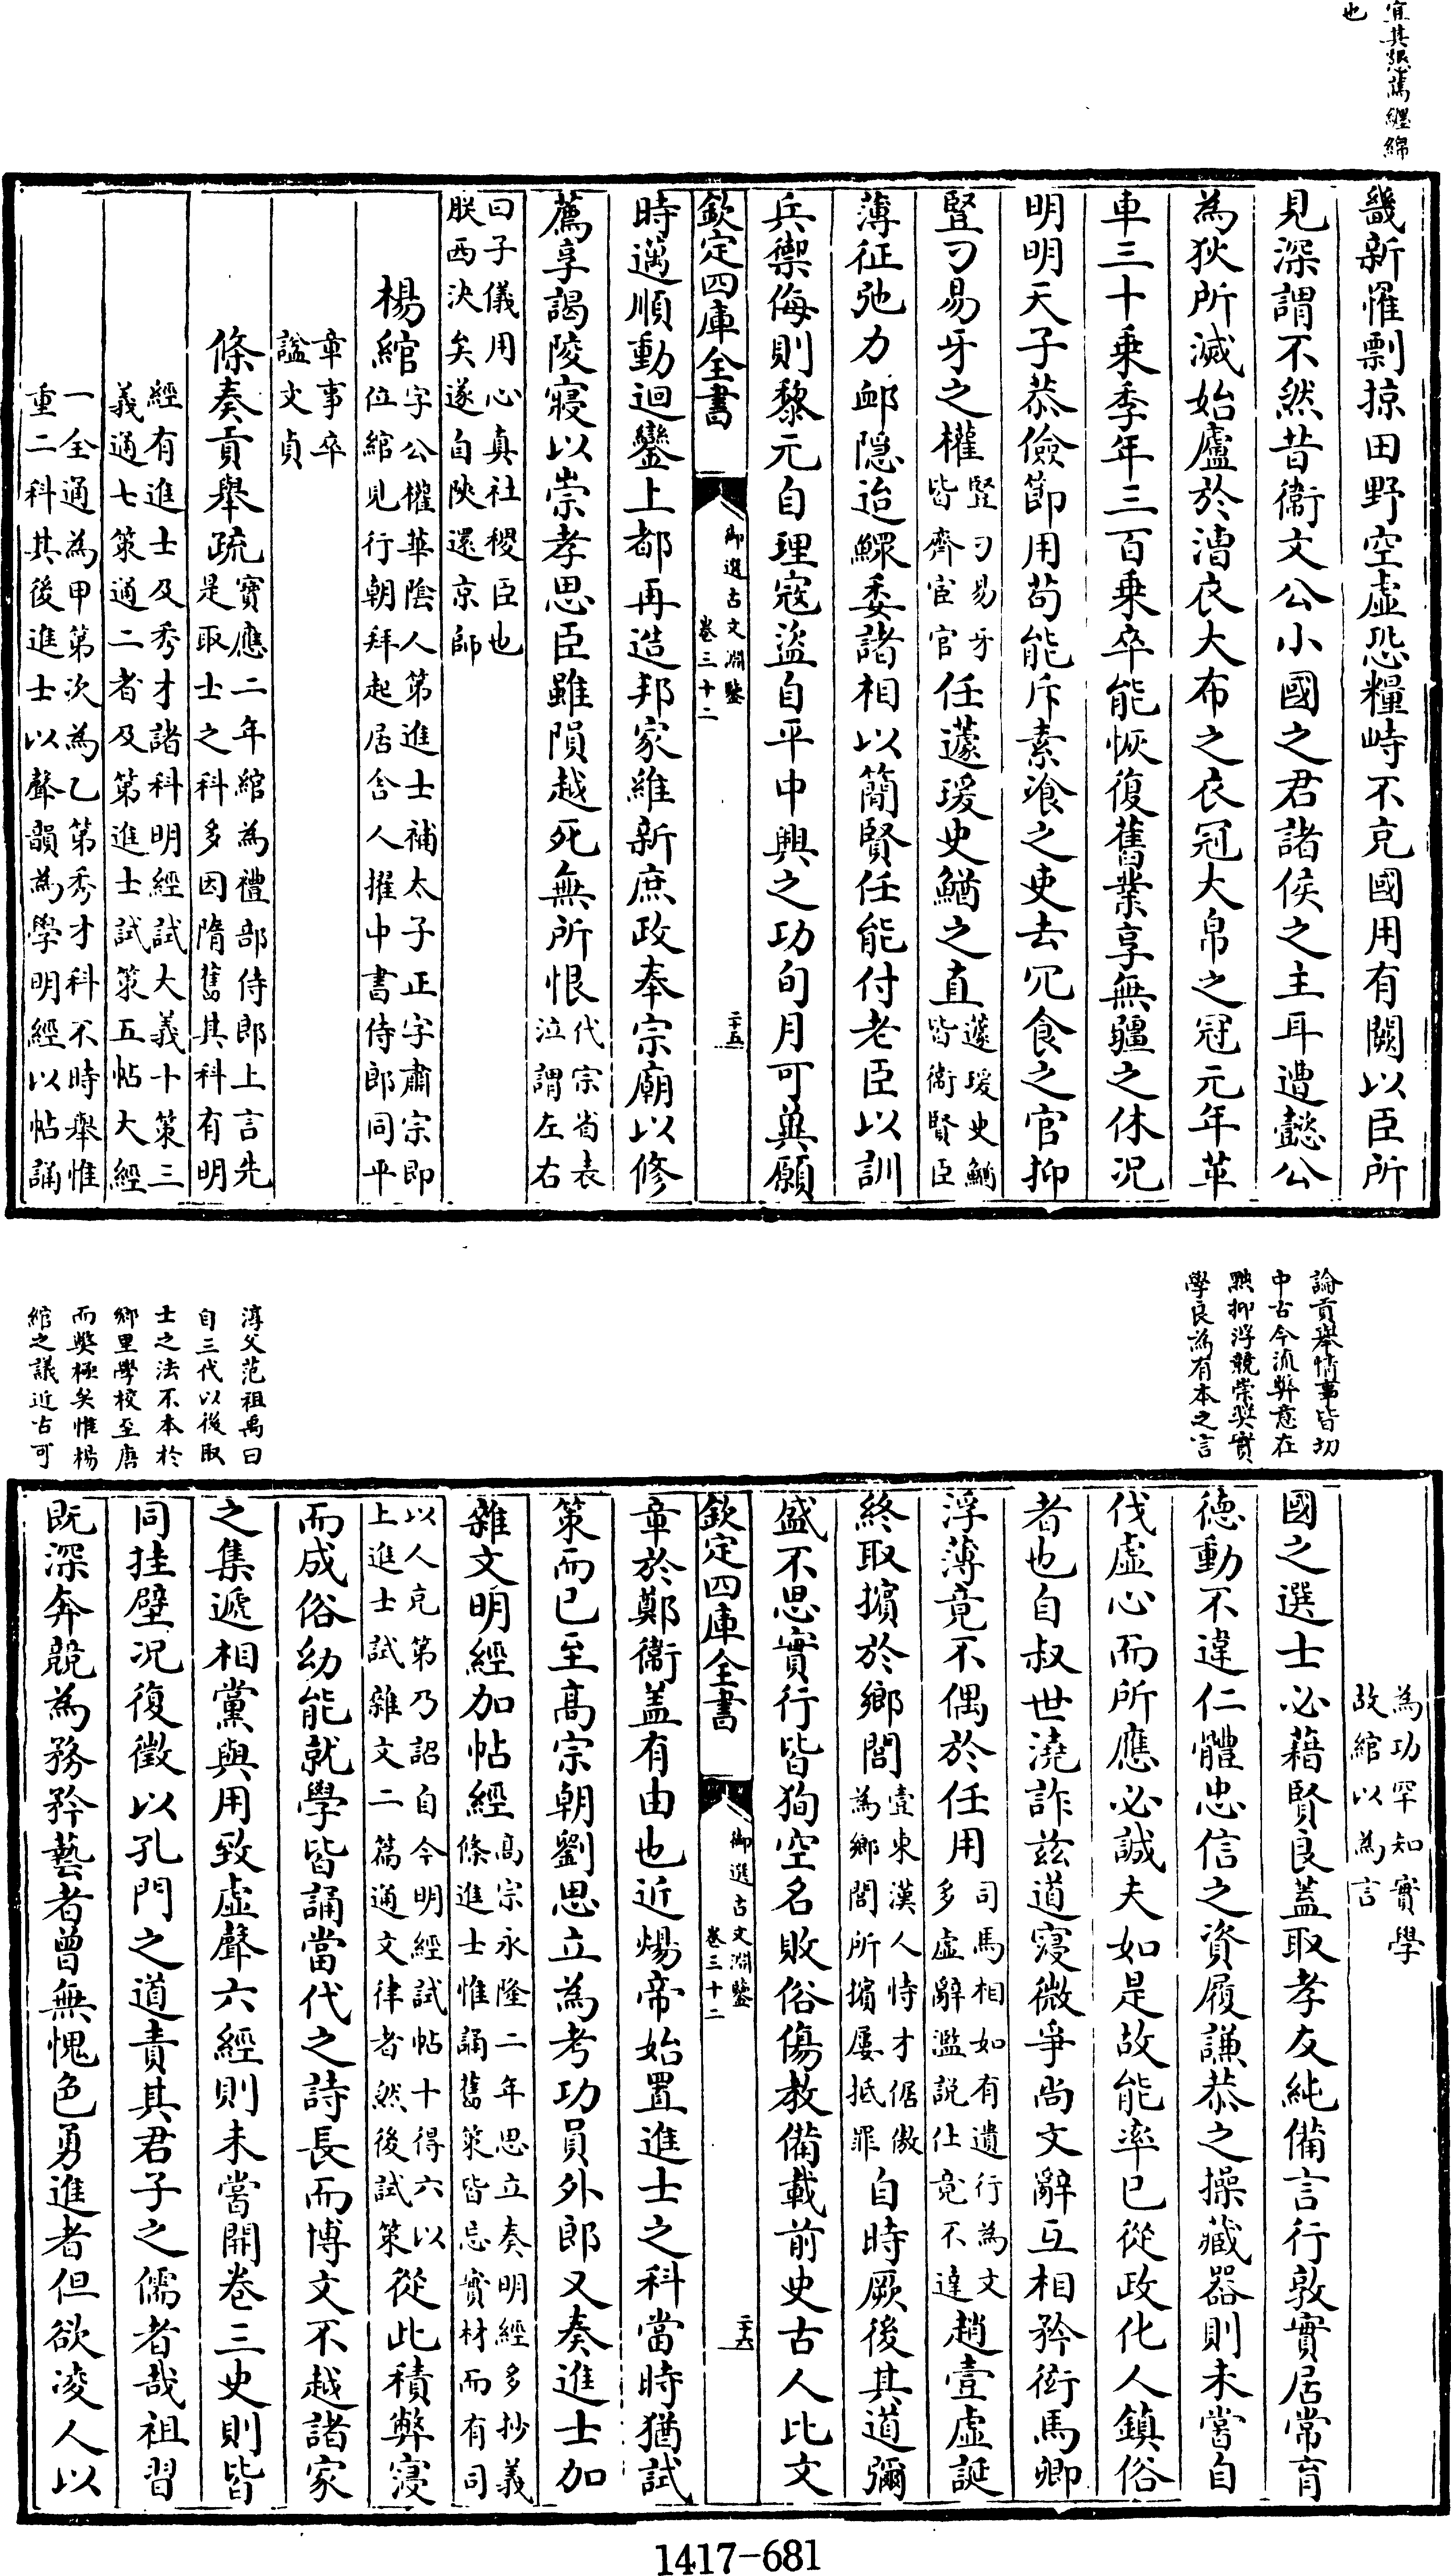 宜其懇篤纒綿
也
畿新罹剽掠田野空虚恐糧峙不充國用有闕以臣所
見深謂不然昔衞文公小國之君諸侯之主耳遭懿公
為狄所滅始廬於漕衣大布之衣冠大帛之冠元年革
車三十乗季年三百乗卒能恢復舊業享無疆之休况
明明天子恭儉節用苟能斥素飡之吏去冗食之官抑
豎刁易牙之權豎刁易牙皆齊宦官任蘧瑗史鰌之直蘧瑗史鰌皆衞賢臣
薄征弛力䘏隠迨鰥委諸相以簡賢任能付老臣以訓
兵禦侮則黎元自理寇盜自平中興之功旬月可兾願
欽定四庫全書 御選古文淵鑒 卷三十二 二十五
時邁順動迴鑾上都再造邦家維新庶政奉宗廟以修
薦享謁陵寢以崇孝思臣雖隕越死無所恨代宗省表泣謂左右
曰子儀用心真社稷臣也
朕西決矣遂自陜還京師
楊綰字公權華隂人第進士補太子正字肅宗即位綰見行朝拜起居舎人擢中書侍郎同平
章事卒
諡文貞
條奏貢舉疏寳應二年綰為禮部侍郎上言先是取士之科多因隋舊其科有明
經有進士及秀才諸科明經試大義十策三
義通七策通二者及第進士試策五帖大經
一全通為甲第次為乙第秀才科不時舉惟
重二科其後進士以聲韻為學明經以帖誦
論貢舉情事皆切
中古今流弊意在
黜抑浮競崇奬實
學良為有本之言
淳父范祖禹曰
自三代以後取
士之法不本於
鄉里學校至唐
而弊極矣惟楊
綰之議近古可
為功罕知實學
故綰以為言
國之選士必藉賢良蓋取孝友純備言行敦實居常育
徳動不違仁體忠信之資履謙恭之操藏器則未嘗自
伐虚心而所應必誠夫如是故能率已從政化人鎮俗
者也自叔世澆詐兹道寖微爭尚文辭互相矜衒馬卿
浮薄竟不偶於任用司馬相如有遺行為文多虚辭濫説仕竟不達趙壹虚誕
終取擯於鄉閭壹東漢人恃才倨傲為鄉閭所擯屢抵罪自時厥後其道彌
盛不思實行皆狥空名敗俗傷教備載前史古人比文
欽定四庫全書 御選古文淵鑒 卷三十二 二十六
章於鄭衞盖有由也近煬帝始置進士之科當時猶試
策而已至髙宗朝劉思立為考功員外郎又奏進士加
雜文明經加帖經髙宗永隆二年思立奏明經多抄義條進士惟誦舊策皆忘實材而有司
以人充第乃詔自今明經試帖十得六以上進士試雜文二篇通文律者然後試策從此積弊寖
而成俗幼能就學皆誦當代之詩長而博文不越諸家
之集遞相黨與用致虚聲六經則未嘗開卷三史則皆
同挂壁况復徵以孔門之道責其君子之儒者哉祖習
既深奔競為務矜藝者曾無愧色勇進者但欲凌人以
1417-681